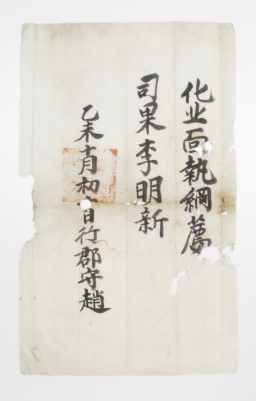 化北面執綱薦
司果李明新
乙未十月初 日行郡守趙